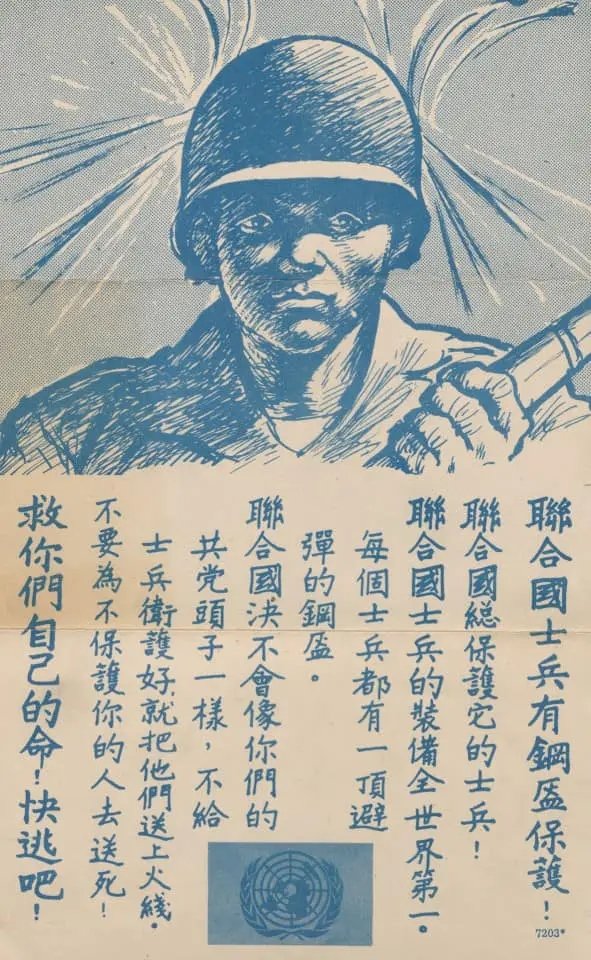 聯合國士兵有鋼盔保護！
聯合國總保護它的士兵！
聯合國士兵的裝備全世界第一。
每個士兵都有一頂避
彈的鋼盔。
聯合國決不會像你們的
共党頭子一樣，不給
士兵衛護好，就把他們送上火綫。
不要為不保護你的人去送死！
救你們自己的命！快逃吧！
7203*